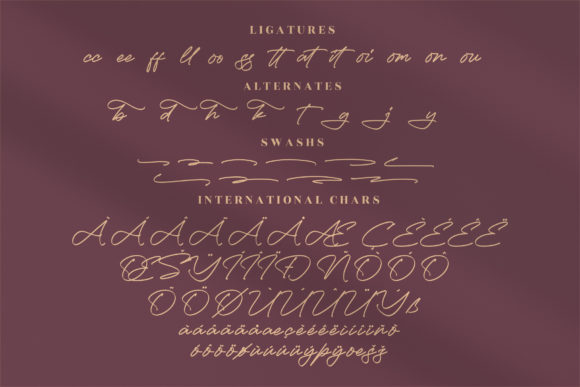 LIGATURES
cc ee ff ll oo ss tt at it oi om on ou
ALTERNATES
b d h k t g j y
SWASHS
INTERNATIONAL CHARS
À Á Â Ã Ä Å Æ Ç È É Ê Ë
Œ Š Ÿ Ì Í Î Ï Ð Ñ Ò Ó Ô
Õ Ö Ø Ù Ú Û Ü Ý ß
àáâãäåæçèéêëìíîïñô